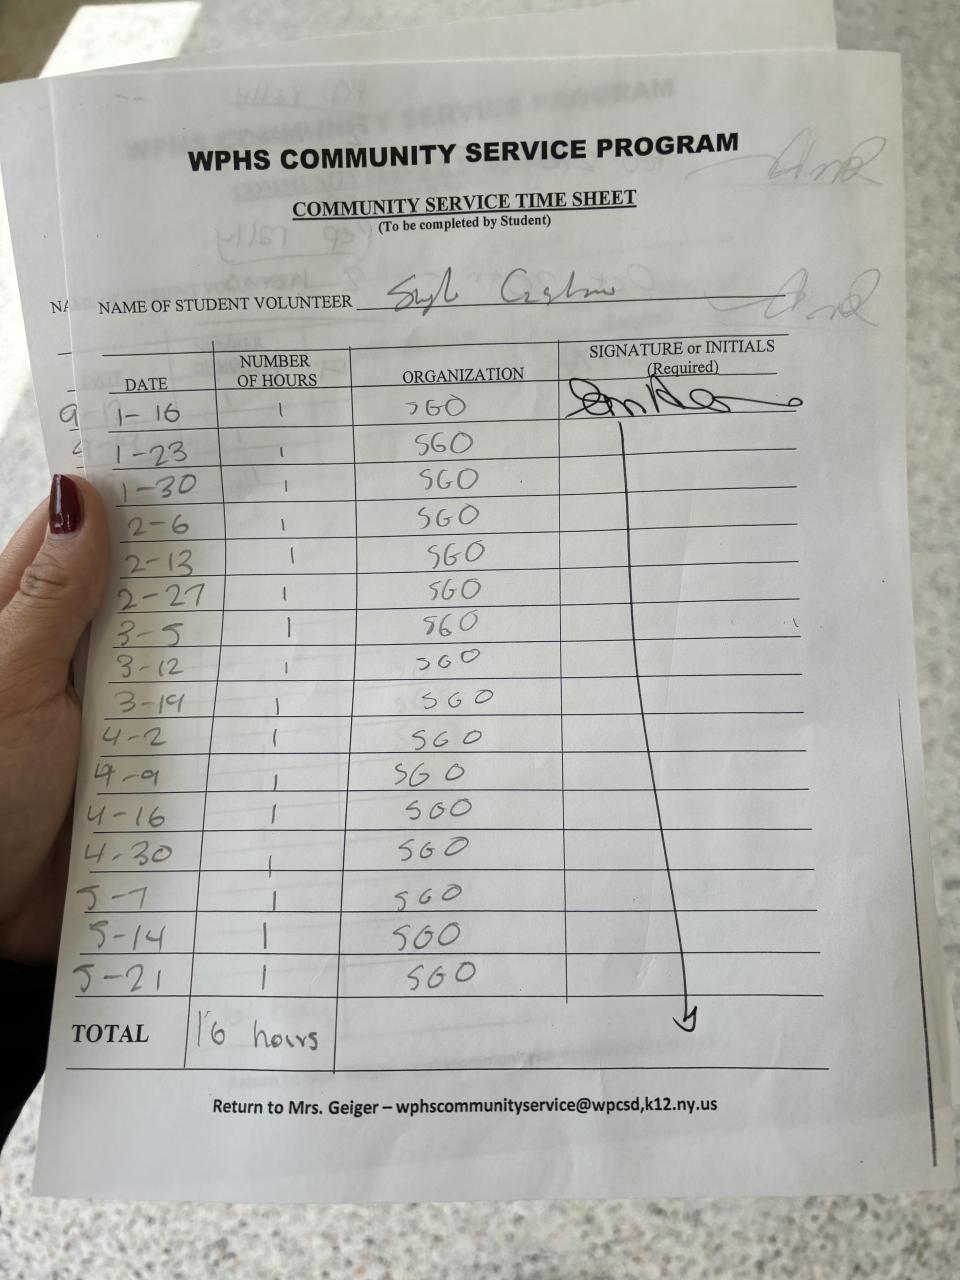 WPHS COMMUNITY SERVICE PROGRAM
COMMUNITY SERVICE TIME SHEET
(To be completed by Student)
NA
NAME OF STUDENT VOLUNTEER
DATE NUMBER OF HOURS ORGANIZATION SIGNATURE or INITIALS (Required)
1-16 1 SGO
1-23 1 SGO
1-30 1 SGO
2-6 1 SGO
2-13 1 SGO
2-27 1 SGO
3-5 1 SGO
3-12 1 SGO
3-19 1 SGO
4-2 1 SGO
4-9 1 SGO
4-16 1 SGO
4-30 1 SGO
5-7 1 SGO
5-14 1 SGO
5-21 1 SGO
TOTAL 16 hours
Return to Mrs. Geiger – wphscommunityservice@wpcsd,k12.ny.us